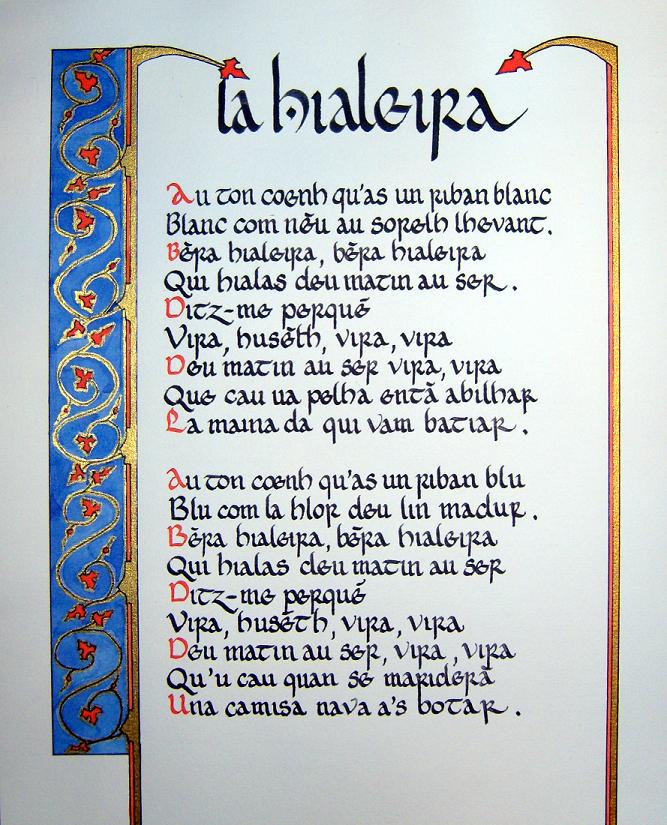 la hialeira
Au ton coenh qu'as un riban blanc
Blanc com nèu au sorelh lhevant.
Bèra hialeira, bèra hialeira
Qui hialas deu matin au ser.
Ditz-me perqué
Vira, husèth, vira, vira
Deu matin au ser vira, vira
Que cau ua pelha entà abilhar
La maina da qui vam batiar.
Au ton coenh qu'as un riban blu
Blu com la hlor deu lin madur.
Bèra hialeira, bèra hialeira
Qui hialas deu matin au ser
Ditz-me perqué
Vira, husèth, vira, vira
Deu matin au ser, vira, vira
Qu'u cau quan se mariderà
Una camisa nava a's botar.